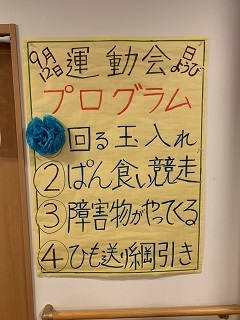 9月12日 運動会 日ようび
プログラム
回る玉入れ
②ぱん食い競走
③障害物がやってくる
④ひも送り綱引き